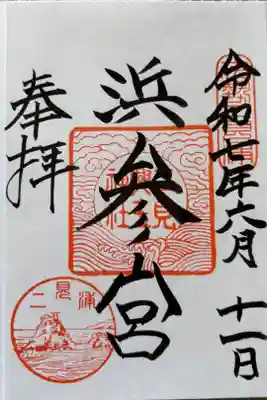 令和七年六月十一日
浜参宮
奉拝
二見浦